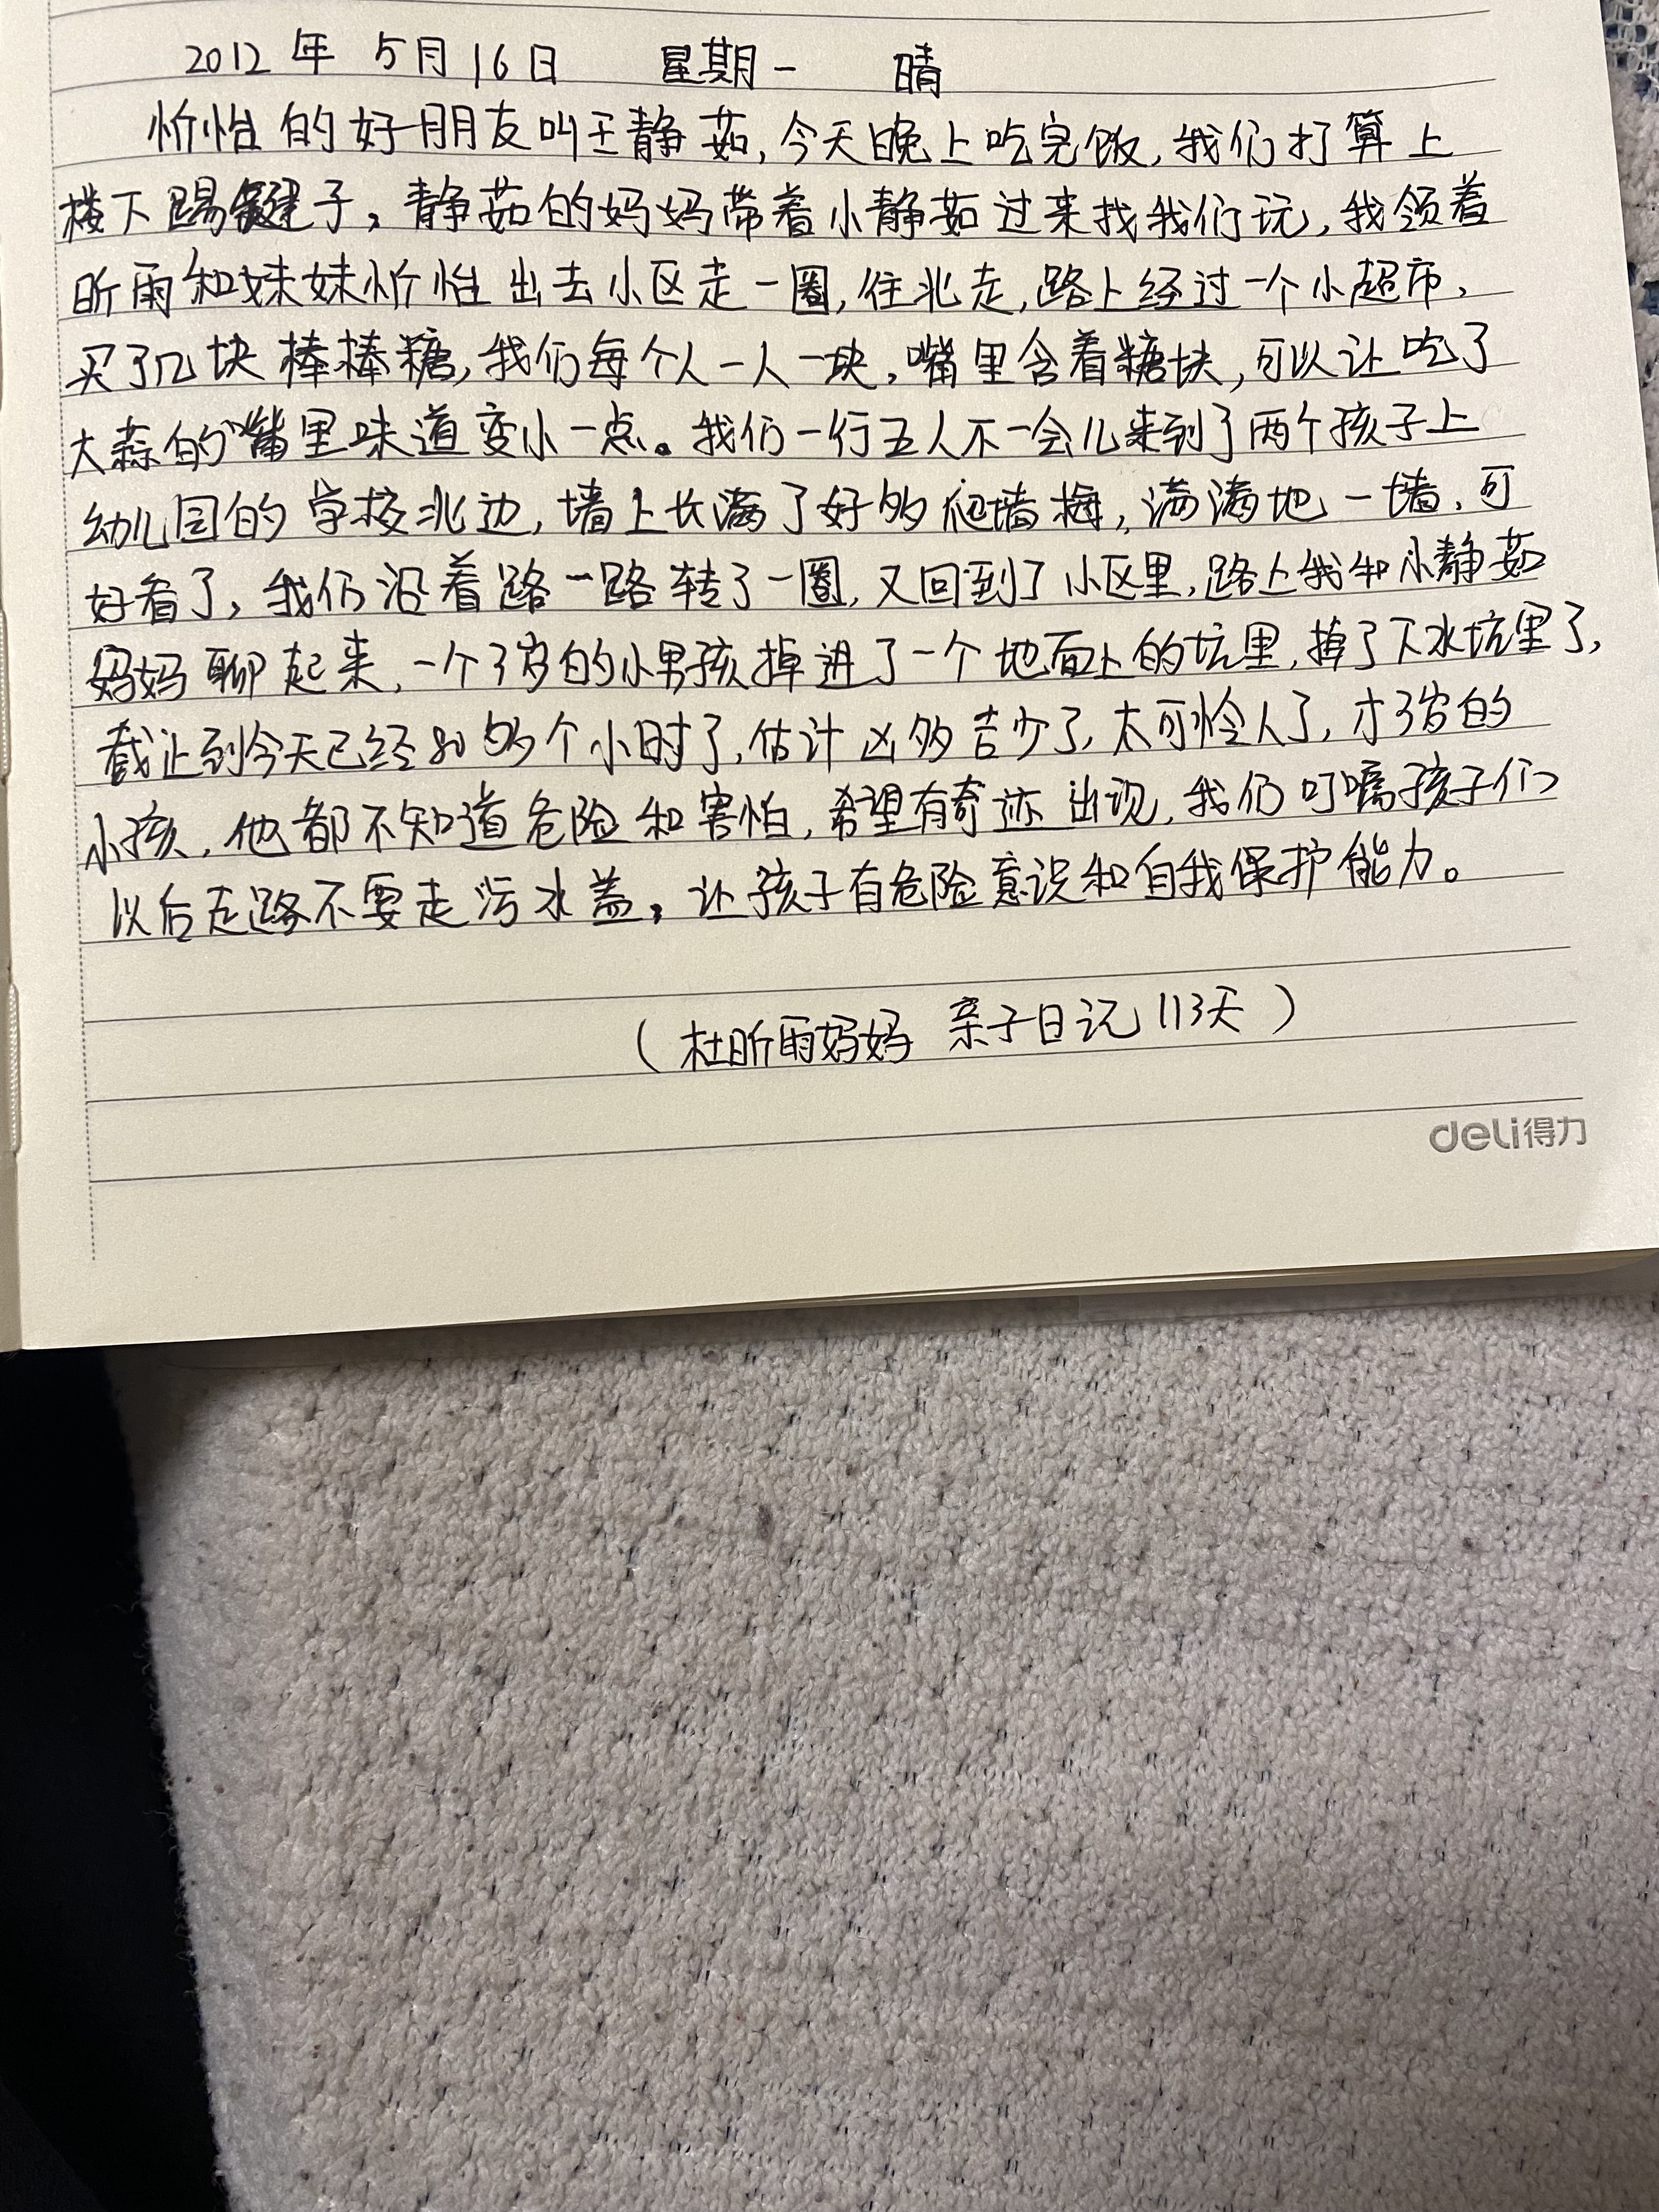 2012年 5月16日 星期一 晴
忻怡的好朋友叫王静茹,今天晚上吃完饭,我们打算上
楼下踢毽子,静茹的妈妈带着小静茹过来找我们玩,我领着
昕雨和妹妹忻怡出去小区走一圈,住北走,路上经过一个小超市,
买了几块棒棒糖,我们每个人一人一块,嘴里含着糖块,可以让吃了
大蒜的嘴里味道变小一点。我们一行五人不一会儿来到了两个孩子上
幼儿园的学校北边,墙上长满了好多爬墙梅,满满地一墙,可
好看了,我们沿着路一路转了一圈,又回到了小区里,路上我和小静茹
妈妈聊起来,一个3岁的小男孩掉进了一个地面上的坑里,掉了下水坑里了,
截止到今天已经80多个小时了,估计凶多吉少了,太可怜人了,才3岁的
小孩,他都不知道危险和害怕,希望有奇迹出现,我们叮嘱孩子们
以后走路不要走污水盖,让孩子有危险意识和自我保护能力。
(杜昕雨妈妈 亲子日记113天)
deli得力